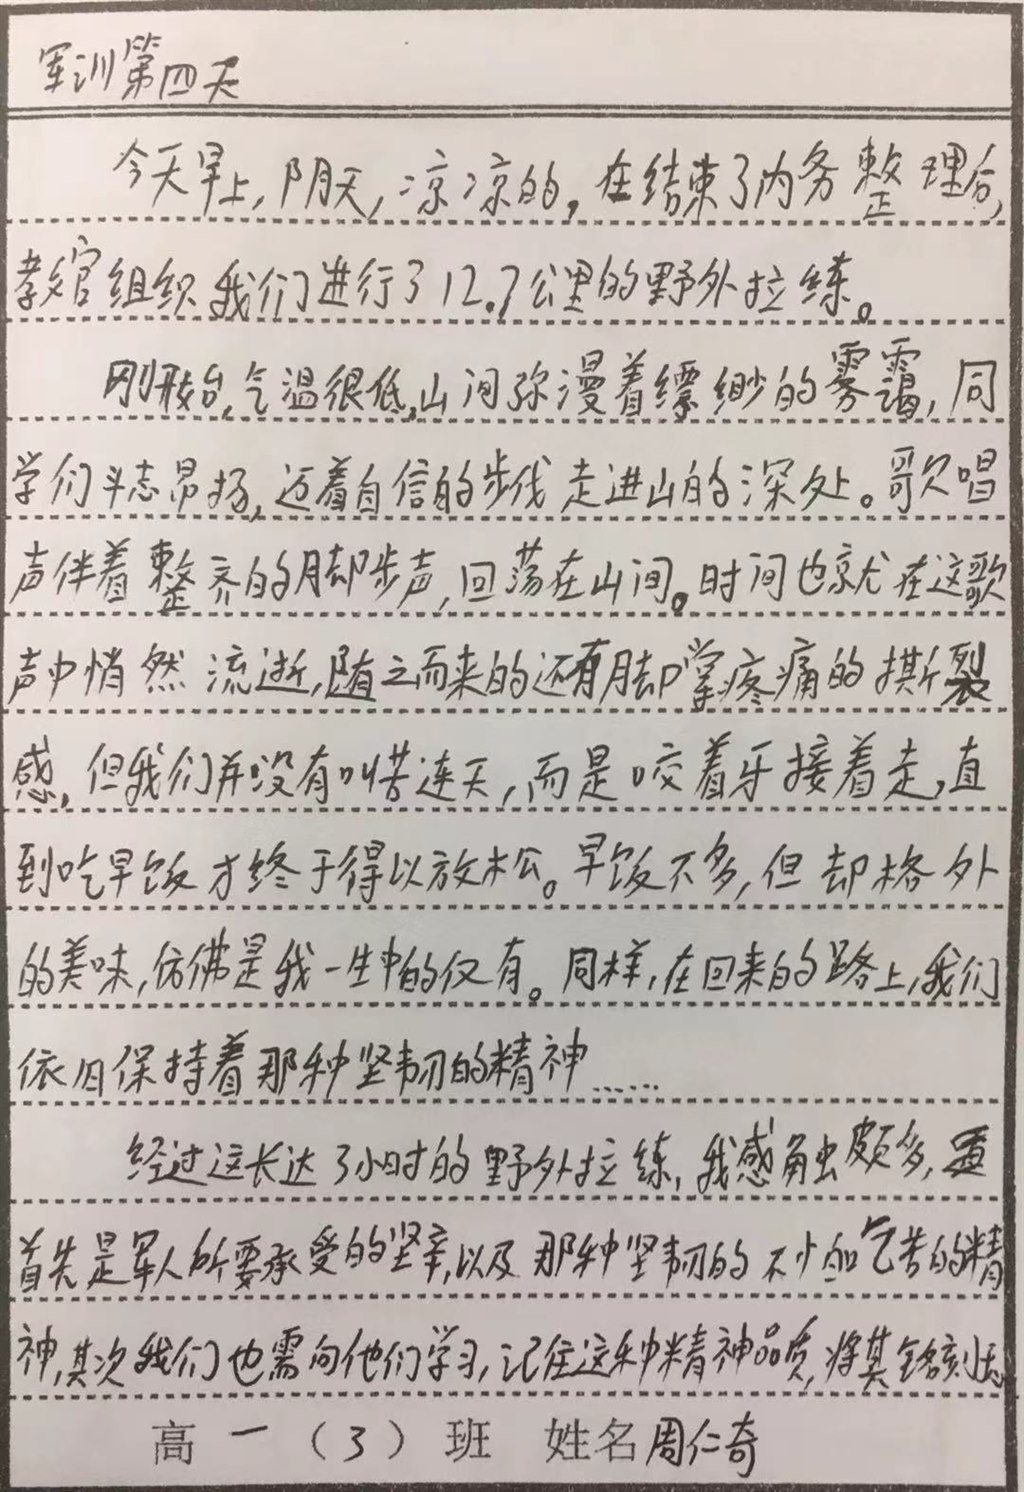 军训第四天
今天早上,阴天,凉凉的。在结束了内务整理后,
教官组织我们进行了12.7公里的野外拉练。
刚开始,气温很低,山间弥漫着缥缈的雾霭,同
学们斗志昂扬,迈着自信的步伐走进山的深处。歌唱
声伴着整齐的脚步声,回荡在山间。时间也就在这歌
声中悄然流逝,随之而来的还有脚掌疼痛的撕裂
感,但我们并没有叫苦连天,而是咬着牙接着走,直
到吃早饭才终于得以放松。早饭不多,但却格外
的美味,仿佛是我一生中的仅有。同样,在回来的路上,我们
依旧保持着那种坚韧的精神……
经过这长达3小时的野外拉练,我感触颇多,
首先是军人所要承受的坚辛,以及那种坚韧的不怕吃苦的精
神,其次我们也需向他们学习,记住这种精神品质,将其铭刻
高一(3)班 姓名周仁奇